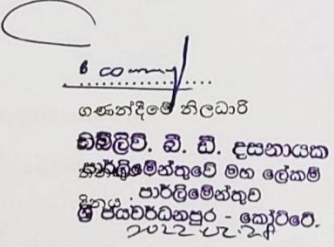 ගණන්දීමේ නිලධාරි
ඩබ්ලිව්. බී. ඩී. දසනායක
පාර්ලිමේන්තුවේ මහ ලේකම්
දිනය : පාර්ලිමේන්තුව
ශ්‍රී ජයවර්ධනපුර - කෝට්ටේ.